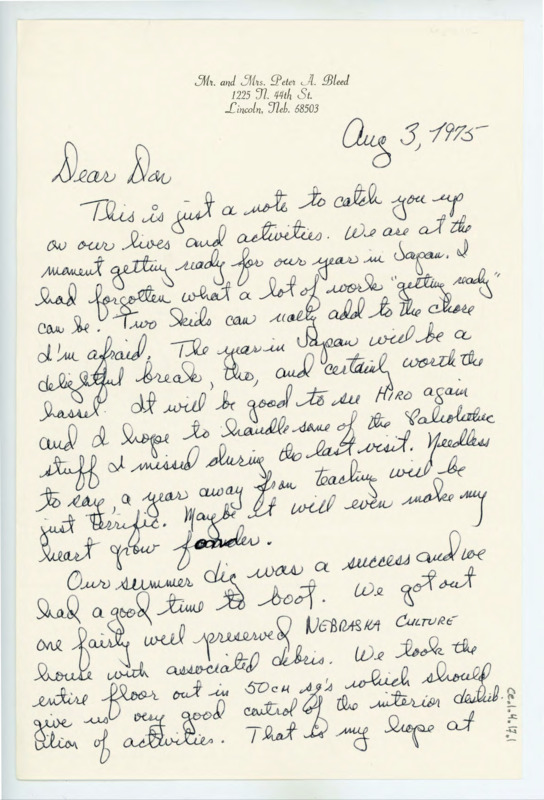 Mr. and Mrs. Peter A. Bleed
1225 N. 44th St.
Lincoln, Neb. 68503
Aug 3, 1975
Dear Don
This is just a note to catch you up
on our lives and activities. We are at the
moment getting ready for our year in Japan. I
had forgotten what a lot of work "getting ready"
can be. Two kids can really add to the chore
I'm afraid. The year in Japan will be a
delightful break, tho, and certainly worth the
hassel. It will be good to see HIRO again
and I hope to handle some of the Paleolithic
stuff I missed during the last visit. Needless
to say, a year away from teaching will be
just terrific. Maybe it will even make my
heart grow fonder.
Our summer dig was a success and we
had a good time to boot. We got out
one fairly well preserved NEBRASKA CULTURE
house with associated debris. We took the
entire floor out in 50cm sq's which should
give us very good control of the interior distrib-
ution of activities. That is my hope at
CE.1.4.17.1